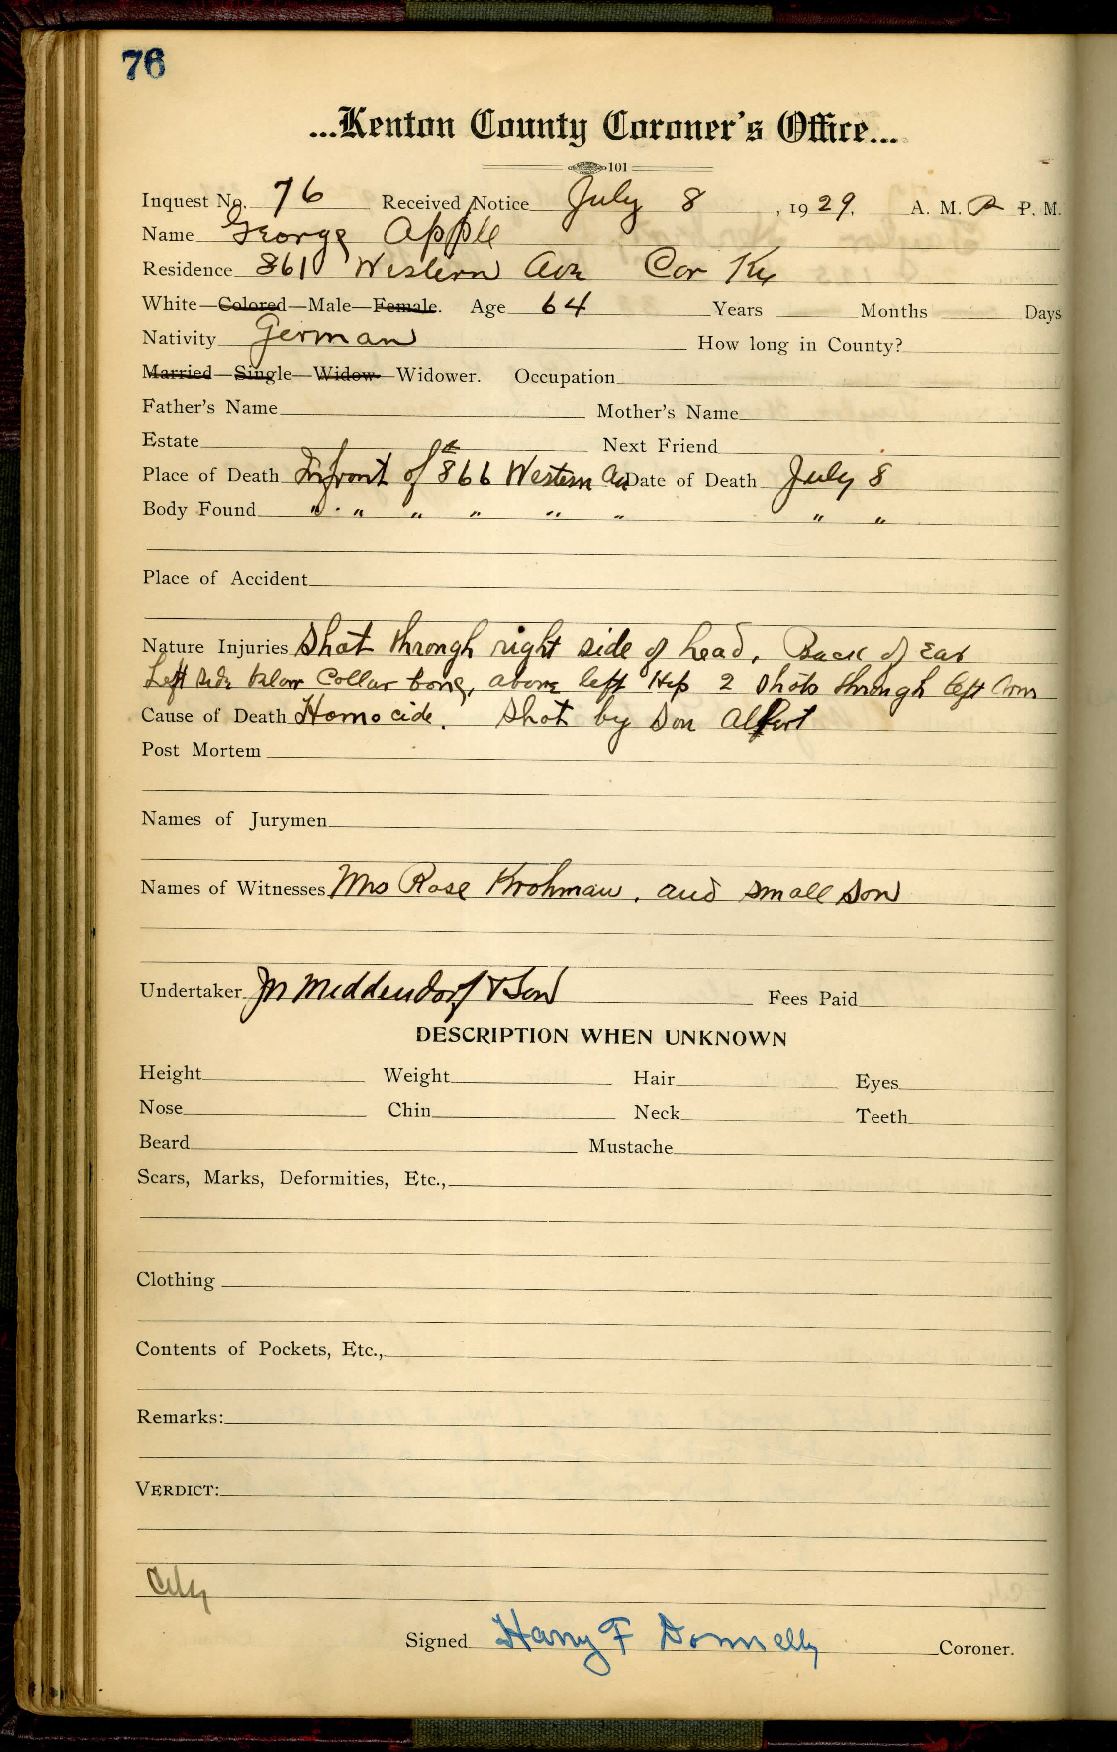 76
...Kenton County Coroner's Office...
101
Inquest No. 76 Received Notice July 8, 1929. A. M. P P. M.
Name George Apple
Residence 861 Western Ave Cov Ky
White—Colored—Male—Female. Age 64 Years Months Days
Nativity German How long in County?
Married—Single—Widow—Widower. Occupation
Father's Name Mother's Name
Estate Next Friend
Place of Death Infront of 866 Western Av Date of Death July 8
Body Found " " " " " " " "
Place of Accident
Nature Injuries Shot through right side of head, Back of Ear
Left side below Collar bone, above left Hip 2 shots through left Arm
Cause of Death Homocide. Shot by Son Albert
Post Mortem
Names of Jurymen
Names of Witnesses Mrs Rose Krohman, and small son
Undertaker Middendorf & Son Fees Paid
DESCRIPTION WHEN UNKNOWN
Height Weight Hair Eyes
Nose Chin Neck Teeth
Beard Mustache
Scars, Marks, Deformities, Etc.,
Clothing
Contents of Pockets, Etc.,
Remarks:
VERDICT:
City
Signed Harry F Donnelly Coroner.